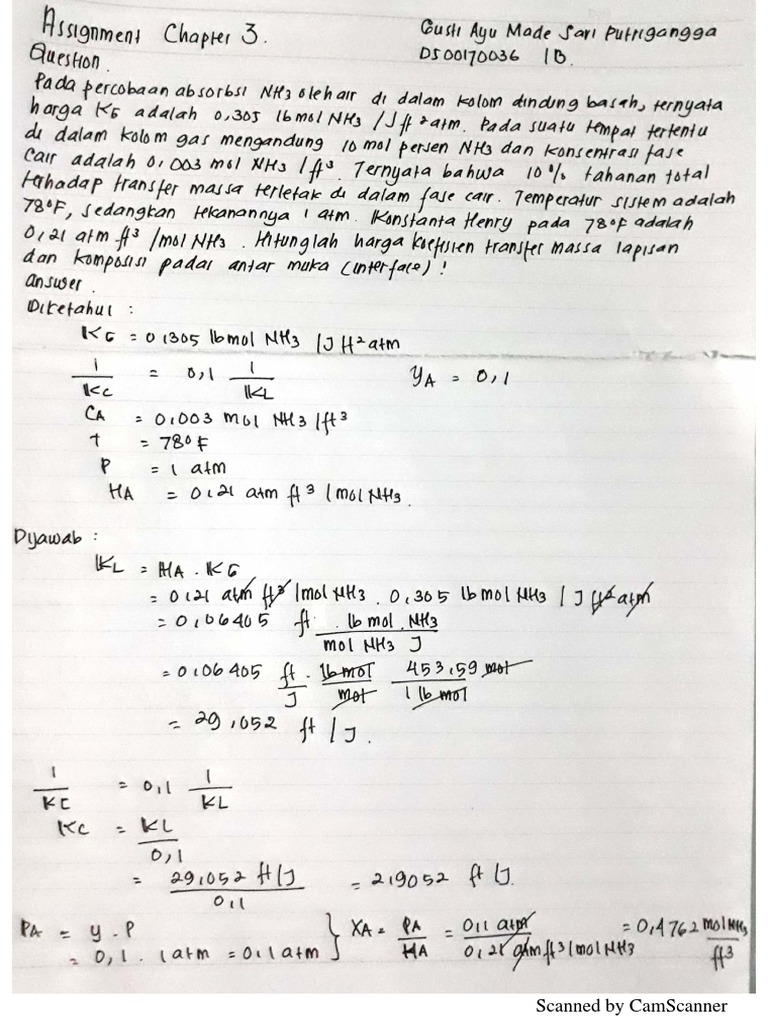 Assignment Chapter 3.
Gusti Ayu Made Sari Putrigangga
D500170036 / B.
Question
Pada percobaan absorbsi NH3 oleh air di dalam kolom dinding basah, ternyata
harga KG adalah 0,305 lbmol NH3 / J ft²atm. Pada suatu tempat tertentu
di dalam kolom gas mengandung 10 mol persen NH3 dan konsentrasi fase
cair adalah 0,003 mol NH3 / ft³. Ternyata bahwa 10% tahanan total
terhadap transfer massa terletak di dalam fase cair. Temperatur sistem adalah
78°F, sedangkan tekanannya 1 atm. Konstanta Henry pada 78°F adalah
0,21 atm ft³ / mol NH3. Hitunglah harga koefisien transfer massa lapisan
dan komposisi padar antar muka (interface)!
answer.
Diketahui :
KG = 0,305 lbmol NH3 / J ft² atm
1/kc = 0,1 1/KL yA = 0,1
CA = 0,003 mol NH3 / ft³
t = 78°F
P = 1 atm
HA = 0,21 atm ft³ / mol NH3.
Dijawab :
KL = HA . KG
= 0,21 atm ft³ / mol NH3 . 0,305 lb mol NH3 / J ft² atm
= 0,06405 ft . lb mol . NH3 / mol NH3 J
= 0,06405 ft/J . lb mol/mol 453,59 mol/1 lb mol
= 29,052 ft / J.
1/KC = 0,1 1/KL
Kc = KL/0,1
= 29,052 ft/J / 0,1 = 2,9052 ft / J.
PA = y . P
= 0,1 . 1 atm = 0,1 atm } XA = PA/HA = 0,1 atm / 0,21 atm ft³ / mol NH3 = 0,4762 mol NH3/ft³
Scanned by CamScanner